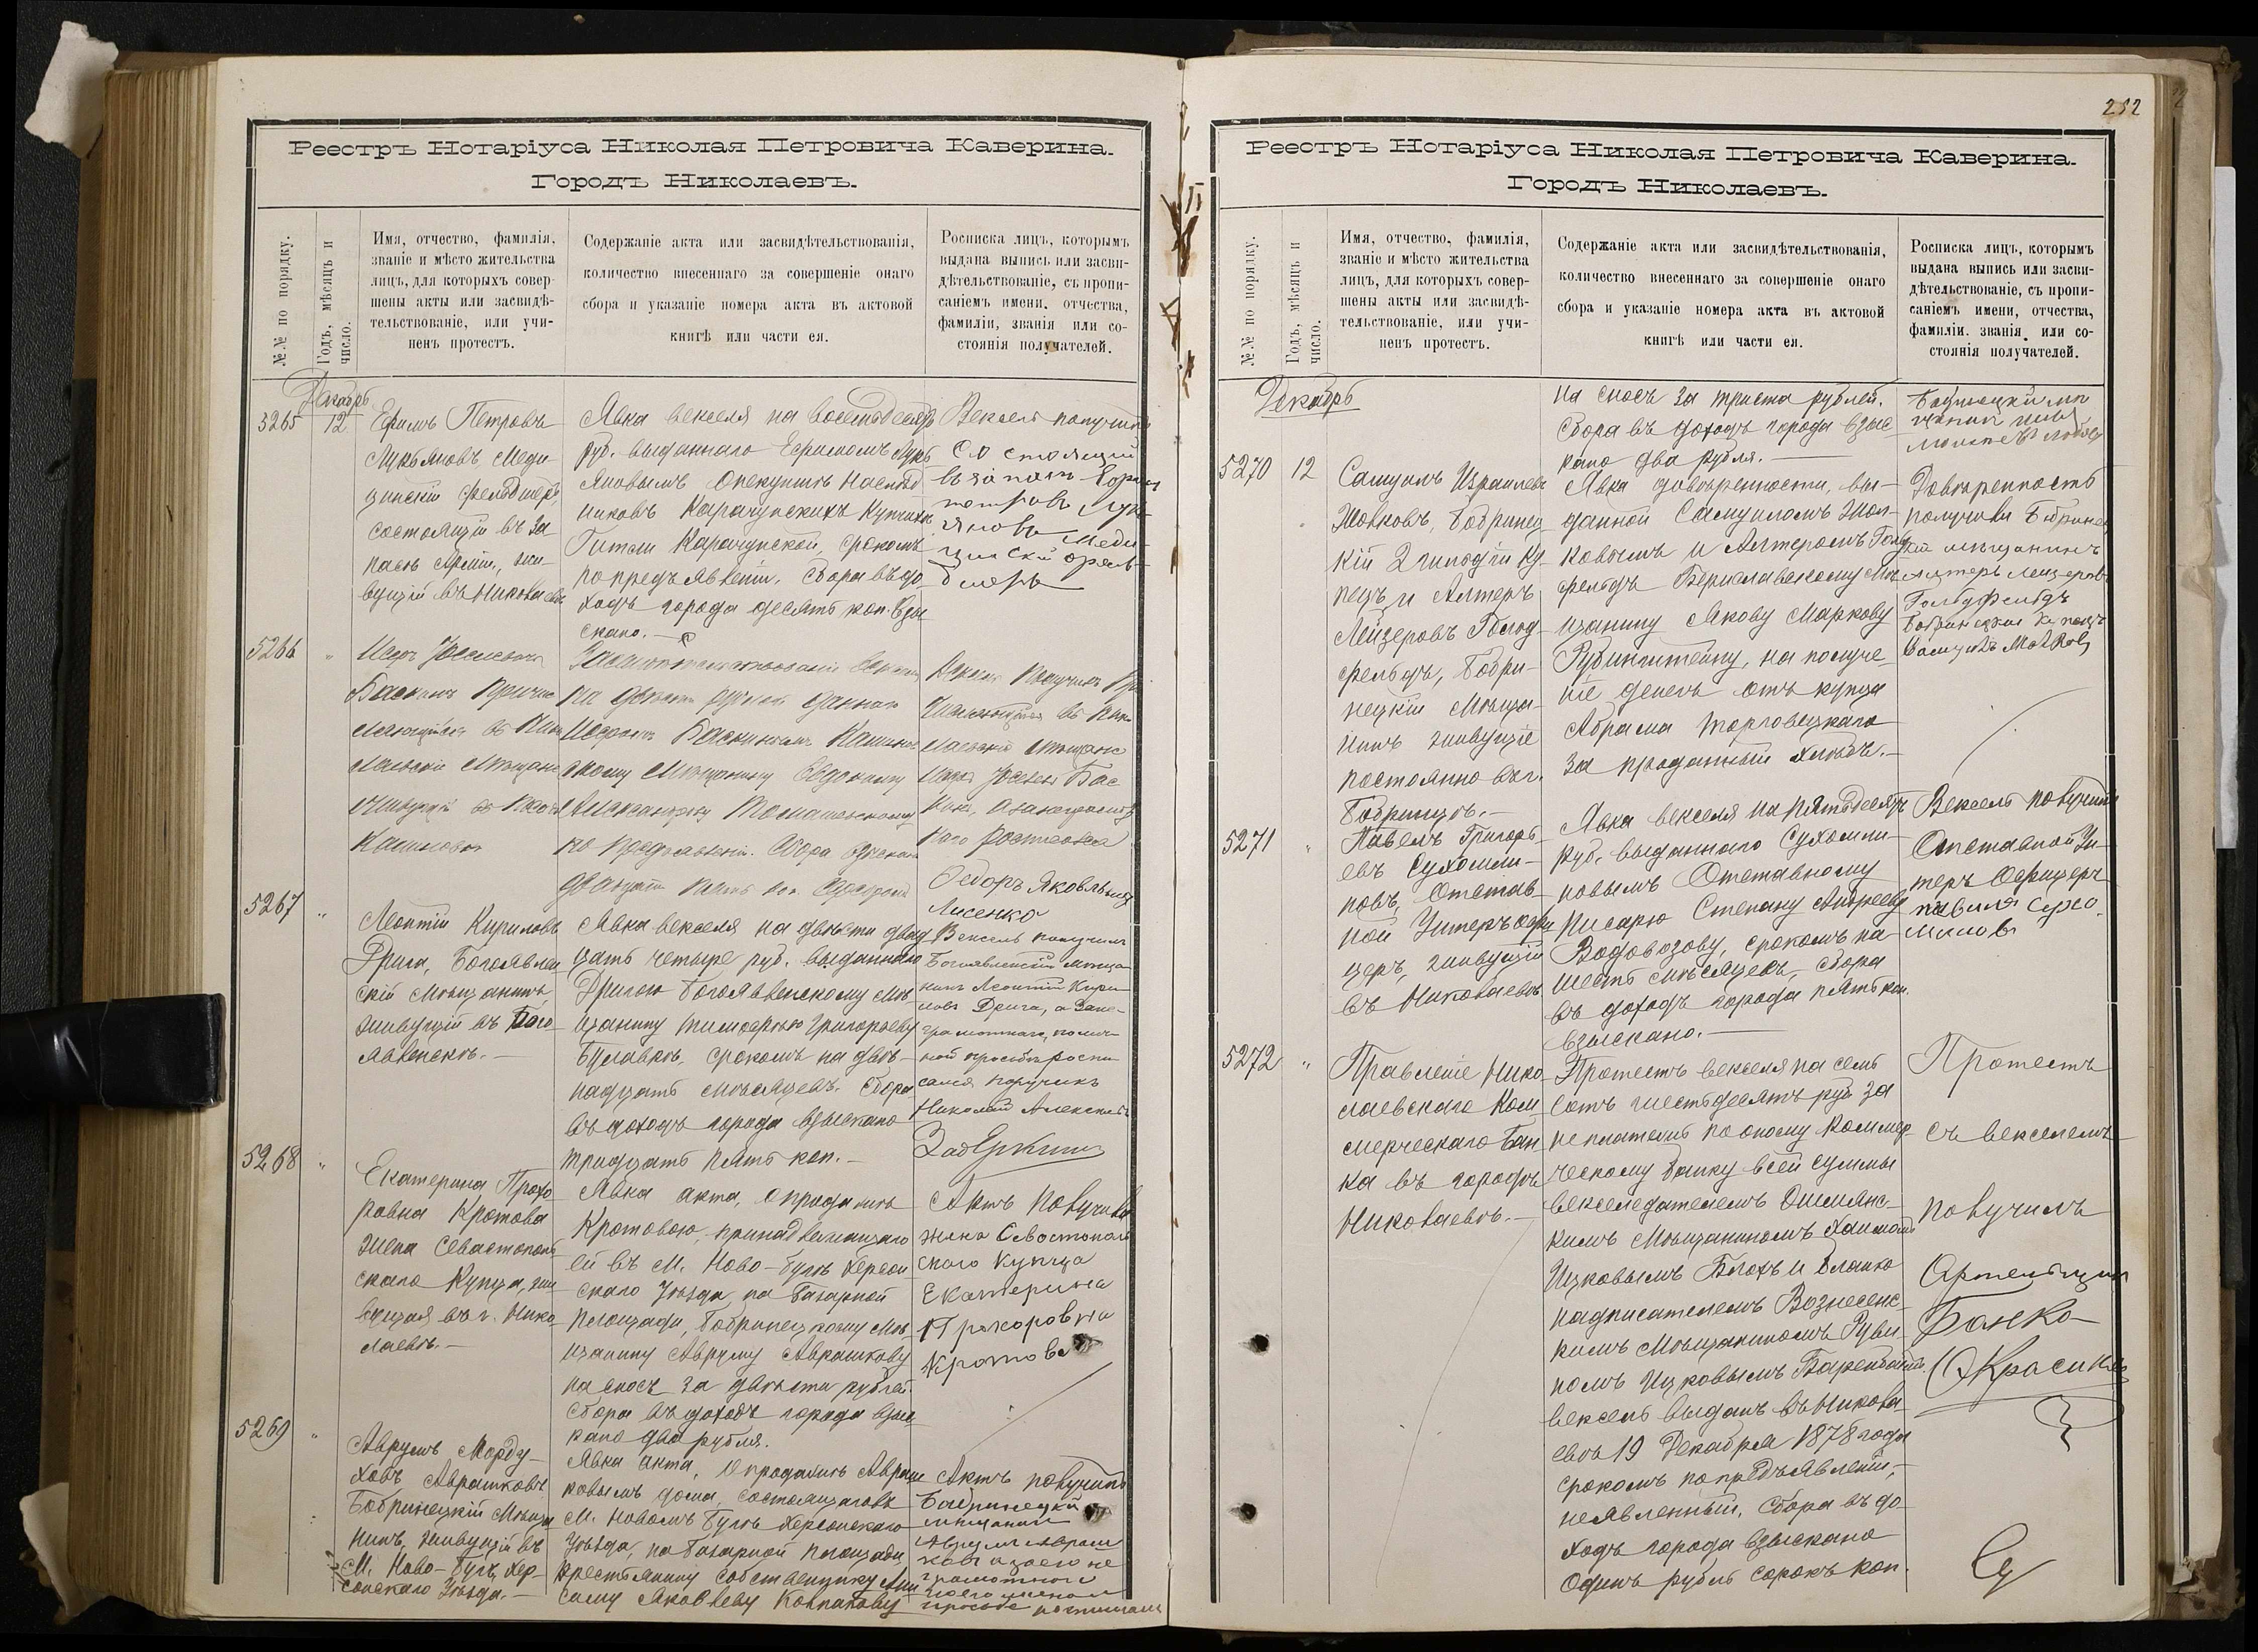 Реестръ Нотаріуса Николая Петровича Каверина.
Городъ Николаевъ.
№№ по порядку.
Годъ, мѣсяцъ и
число.
Имя, отчество, фамилія,
званіе и мѣсто жительства
лицъ, для которыхъ совер-
шены акты или засвидѣ-
тельствованіе, или учи-
ненъ протестъ.
Содержаніе акта или засвидѣтельствованія,
количество внесеннаго за совершеніе онаго
сбора и указаніе номера акта въ актовой
книгѣ или части ея.
Росписка лицъ, которымъ
выдана выпись или засви-
дѣтельствованіе, съ пропи-
саніемъ имени, отчества,
фамиліи, званія или со-
стоянія получателей.
Декабрь
5265
12
Ефимъ Петровъ
Лукьяновъ, Меди-
цинскій фельдшеръ,
состоящій въ за
пасѣ Арміи, жи-
вущій въ Николаевѣ
Явка векселя на восемьдесятъ
руб. выданнаго Ефимомъ Лукь
яновымъ Опекуншѣ Наслѣд
никовъ Карачунскихъ Купчихѣ
Гителы Карачунской, срокомъ
по предъявленіи. Сбора въ до
ходъ города десять коп. взы
скано.
Вексель получилъ
Состоящий
в запасе
петровъ Лукь
яновъ Меди-
цинский фель-
дшеръ
5266
"
Баскинъ причис
ляющійся въ Нико
лаевскіе Мѣщане
Іосевичемъ Баскинымъ
скому Мѣщанину Евдокиму
Александру Томашевскому
по предъявленіи. Сбора взыскано
двадцать пять коп.
Вексель Получилъ При
числяющійся въ Нико
лаевскіе Мѣщане
Бас
кинъ, а за неграмотн
наго Росписался
Федоръ Яковлевичъ
Лисенко
5267
"
Леонтій Кириловъ
Дрига, Богоявлен
скій Мѣщанинъ,
живущій въ Бого-
явленскѣ.
Явка векселя на двѣсти двад
цать четыре руб. выданнаго
Дригою Богоявленскому Мѣ-
щанину Тимофею Григорьеву
Булавко, срокомъ на двѣ-
надцать мѣсяцевъ. Сбора
въ доходъ города взыскано
тридцать пять коп.
Вексель получилъ
Богоявленскій мѣща-
нинъ Леонтій Кири-
ловъ Дрига, а за не-
грамотнаго, по лич-
ной просьбѣ распи-
сался поручикъ
Николай Алексѣевъ
5268
"
Екатерина Прохо-
ровна Кротова
жена Севастополь-
скаго Купца, жи
вущая въ г. Нико-
лаевѣ.
Явка акта, о продажѣ
Кротовою, принадлежащаго
ей въ М. Ново-Бугѣ Херсон
скаго Уѣзда, на Базарной
Площади, Бобринецкому Мѣ-
щанину Авруму Аврашкову
на сносъ за двѣсти рублей.
Сбора въ доходъ города взы
скано два рубля.
Актъ получила
жена Севостополь
скаго Купца
Екатерина
Прохоровна
Кротова
5269
"
Аврумъ Морду-
ховъ Аврашковъ
Бобринецкій Мѣща
нинъ, живущій въ
М. Ново-Бугѣ, Хер-
сонскаго Уѣзда.
Явка акта, о продажѣ Авраш
ковымъ дома, состоящаго въ
М. Новомъ Бугѣ Херсонскаго
Уѣзда, на Базарной Площади,
Крестьянину собственнику Ани
симу Яковлеву Колпакову
Актъ получилъ
Бобринецкий
мещанинъ
Аврумъ Авраш
ковъ а за его не
грамотного
по его личной
просьбе
252
Реестръ Нотаріуса Николая Петровича Каверина.
Городъ Николаевъ.
№№ по порядку.
Годъ, мѣсяцъ и
число.
Имя, отчество, фамилія,
званіе и мѣсто жительства
лицъ, для которыхъ совер-
шены акты или засвидѣ-
тельствованіе, или учи-
ненъ протестъ.
Содержаніе акта или засвидѣтельствованія,
количество внесеннаго за совершеніе онаго
сбора и указаніе номера акта въ актовой
книгѣ или части ея.
Росписка лицъ, которымъ
выдана выпись или засви-
дѣтельствованіе, съ пропи-
саніемъ имени, отчества,
фамиліи, званія или со-
стоянія получателей.
Декабрь
на сносъ за триста рублей.
Сбора въ доходъ города взыс-
кано два рубля.
5270
12
Самуилъ Израилевъ
Жолковъ, Бобринец
кій 2 гильдіи Ку-
пецъ и Алтеръ
Лейзеровъ Голод-
фельдъ, Бобри-
нецкій Мѣща-
нинъ живущіе
постоянно въ г.
Бобринцѣ.
Явка довѣренности, вы-
данной Самуиломъ Жол-
ковымъ и Алтеромъ Голд
фельдъ Бериславскому Мѣ
щанину Якову Маркову
Рубинштейну, на получе-
ніе денегъ отъ купца
Абрама Торговецкаго
за проданный хлѣбъ.
Довѣренность
получили Бобринец
кій мѣщанинъ
Алтеръ Лейзеровъ
Голдфельдъ
Бобринецкій Купецъ
5271
"
Павелъ Григорь-
евъ Сухомли-
новъ, Отстав-
ной Унтеръ офи
церъ, живущій
въ Николаевѣ
Явка векселя на пятьдесятъ
руб. выданнаго Сухомли-
новымъ Отставному
Писарю Степану Андрееву
Водовозову, срокомъ на
шесть мѣсяцевъ, сбора
въ доходъ города пять коп.
взыскано.
Вексель получилъ
Отставной Ун-
теръ Офицеръ
Павелъ Сухо-
млинов
5272
"
Правленіе Нико-
лаевскаго Ком-
мерческаго Бан-
ка въ городѣ
Николаевѣ.
Протестъ векселя на семь
сотъ шестьдесятъ руб за
неплатежъ по оному Коммер-
ческому Банку всей суммы
векселедателемъ Ошмянс-
кимъ Мѣщаниномъ Хаимомъ
Ицковымъ Блохъ и бланко
надписателемъ Вознесенс-
кимъ Мѣщаниномъ Руви-
номъ Ицковымъ
вексель выданъ въ Никола-
евѣ 19 Декабря 1878 года
срокомъ по предъявленіи,
неявленный, Сбора въ до-
ходъ города взыскано
Одинъ рубль сорокъ коп.
Протестъ
съ векселемъ
получилъ
Артельщик
Банка